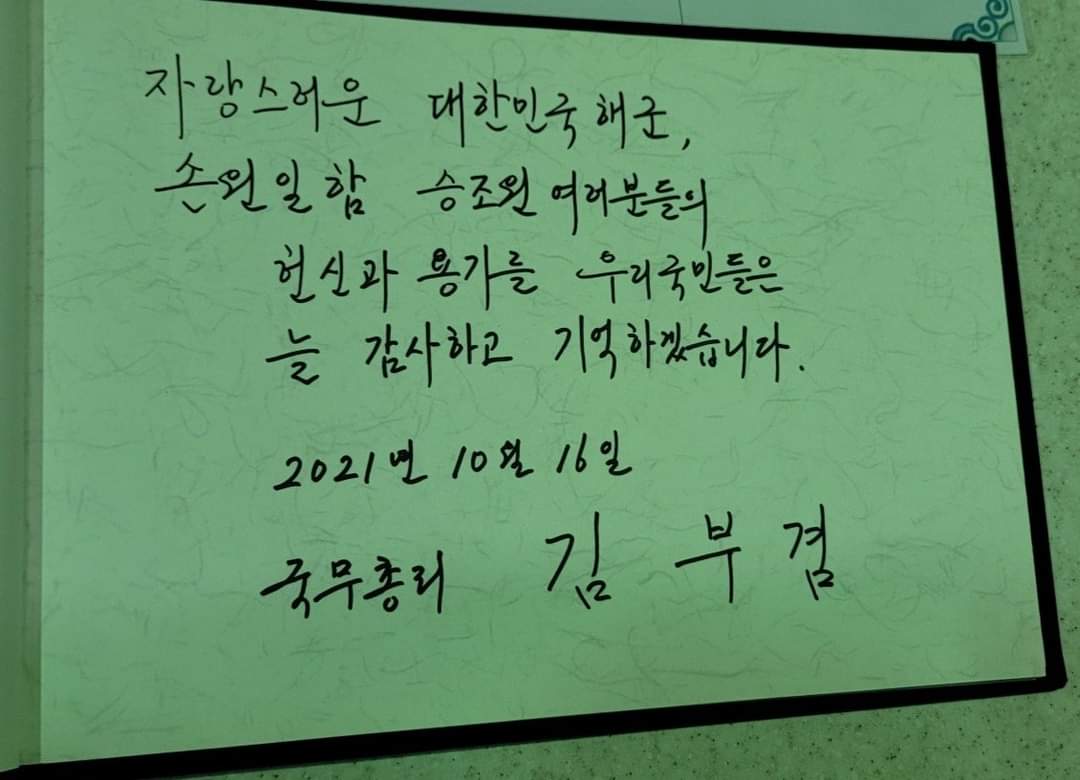 자랑스러운 대한민국 해군,
손원일함 승조원 여러분들의
헌신과 용기를 우리국민들은
늘 감사하고 기억하겠습니다.
2021년 10월 16일
국무총리 김 부 겸